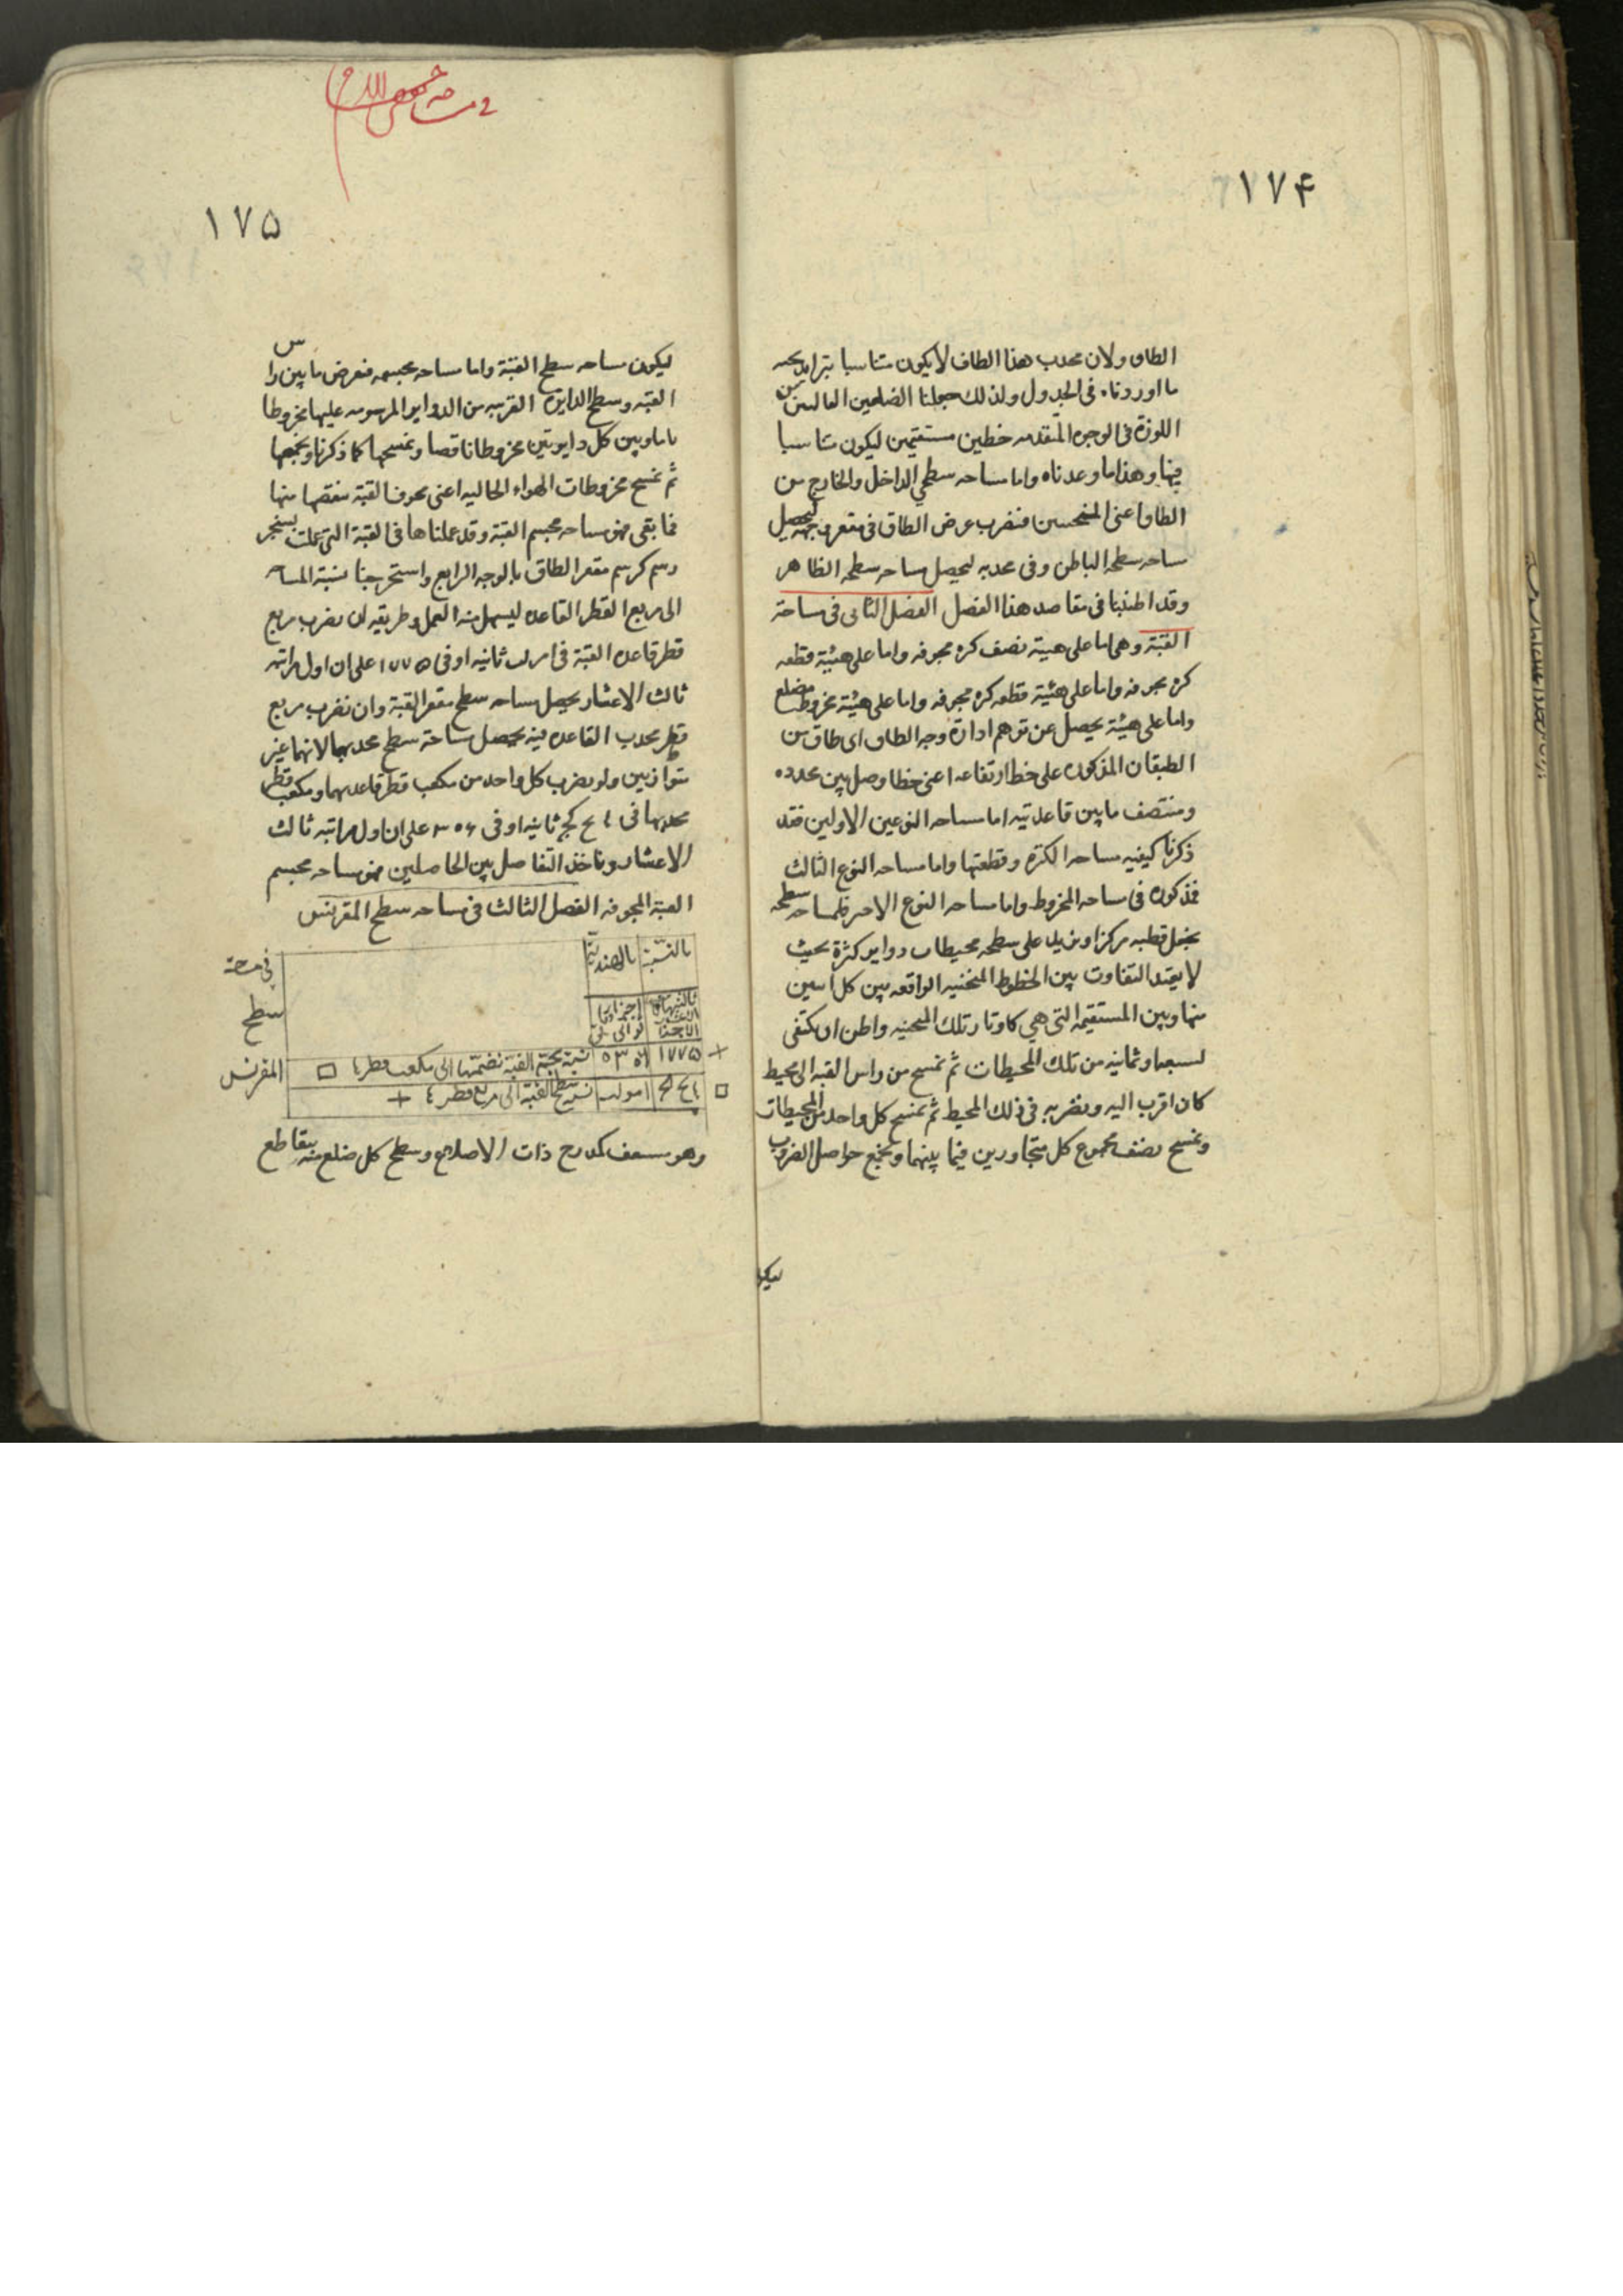 ١٧۴
الطاق ولان محدب هذا الطاق لا يكون متناسبا
ما اوردناه فى الجدول ولذلك جعلنا الضلعين العالـيين من
اللوزة فى الوجوه المتقدمه خطين مستقيمين ليكون متناسبا
فيها وهذا ما وعدناه واما مساحه سطحي الداخل والخارج من
الطاق اعنى المنحنيين فنضرب عرض الطاق فى مقعر جبهته ليحصل
مساحه سطحه الباطن وفى محدبه ليحصل مساحه سطحه الظاهر
وقد اطنبنا فى مقاصد هذا الفصل الفصل الثانى فى مساحة
القبة وهى اما على هيئة نصف كره مجوفه واما على هيئة قطعه
كره مجوفه واما على هيئة قطعه كره مجوفه واما على هيئة مخروط مضلع
واما على هيئة يحصل عن توهم ادارة وجه الطاق اى طاق من
الطيقان المذكوره على خط ارتفاعه اعنى خطا وصل بين محدده
ومنتصف ما بين قاعدتيه اما مساحه النوعين الاولين فقد
ذكرنا كيفيه مساحه الكره وقطعتها واما مساحه النوع الثالث
فمذكوره فى مساحه المخروط واما مساحه النوع الاخير فلمساحه سطحه
نجعل قطبه مركزا ونريد على سطحه محيطات دواير كثرة بحيث
لا يعتد التفاوت بين الخطوط المنحنيه الواقعه بين كل اثنين
منها وبين المستقيمه التى هي كاوتار تلك المنحنيه واظن ان يكتفى
لسبعه وثمانيه من تلك المحيطات ثم نمسح من راس القبه الى محيط
كان اقرب اليه ونضربه فى ذلك المحيط ثم نمسح كل واحد من المحيطات
ونمسح نصف مجموع كل متجاورين فيما بينهما ونجمع حواصل الضروب
ليكو
١٧۵
ليكون مساحه سطح القبة واما مساحه مجسمه فنفرض ما بين راس
القبه وسطح الدايرة القريبه من الدواير المرسومه عليها مخروطا
تاما وبين كل دايرتين مخروطا ناقصا ونمسحها كما ذكرنا ونجمعها
ثم نمسح مخروطات الهواء الخاليه اعنى مجوف القبة ننقصها منها
فما بقى فهو مساحه مجسم القبة وقد عملناها فى القبة التى عملت
رسم كرسم مقعر الطاق بالوجه الرابع واستخرجنا نسبة المساحه
الى مربع القطر القاعده ليسهل منه العمل وطريقه ان نضرب مربع
قطر قاعده القبة فى ا مو لب ثانيه او فى ١٧٧۵ على ان اول مراتبه
ثالث الاعشار يحصل مساحه سطح مقعر القبة وان نضرب مربع
قطر محدب القاعده فيه يحصل مساحة سطح محدبها لانهما غير
متوازيين ولو نضرب كل واحد من مكعب قطر قاعدتهما ومكعب قطر
محدبها فى ح كح ثانيه او فى ٣٠۶ على ان اول مراتبه ثالث
الاعشار وناخذ التفاضل بين الحاصلين فهو مساحه مجسم
القبة المجوفه الفصل الثالث فى مساحه سطح المقرنس
بالنسبة بالهنديه
١٧٧۵ نسبة الى مكعب قطرها
ا مو لب نسبة سطح القبة الى مربع قطرها
فى مساحة
سطح
المقرنس
وهو سقف كمدرج ذات الاضلاع وسطح كل ضلع منه يتقاطع